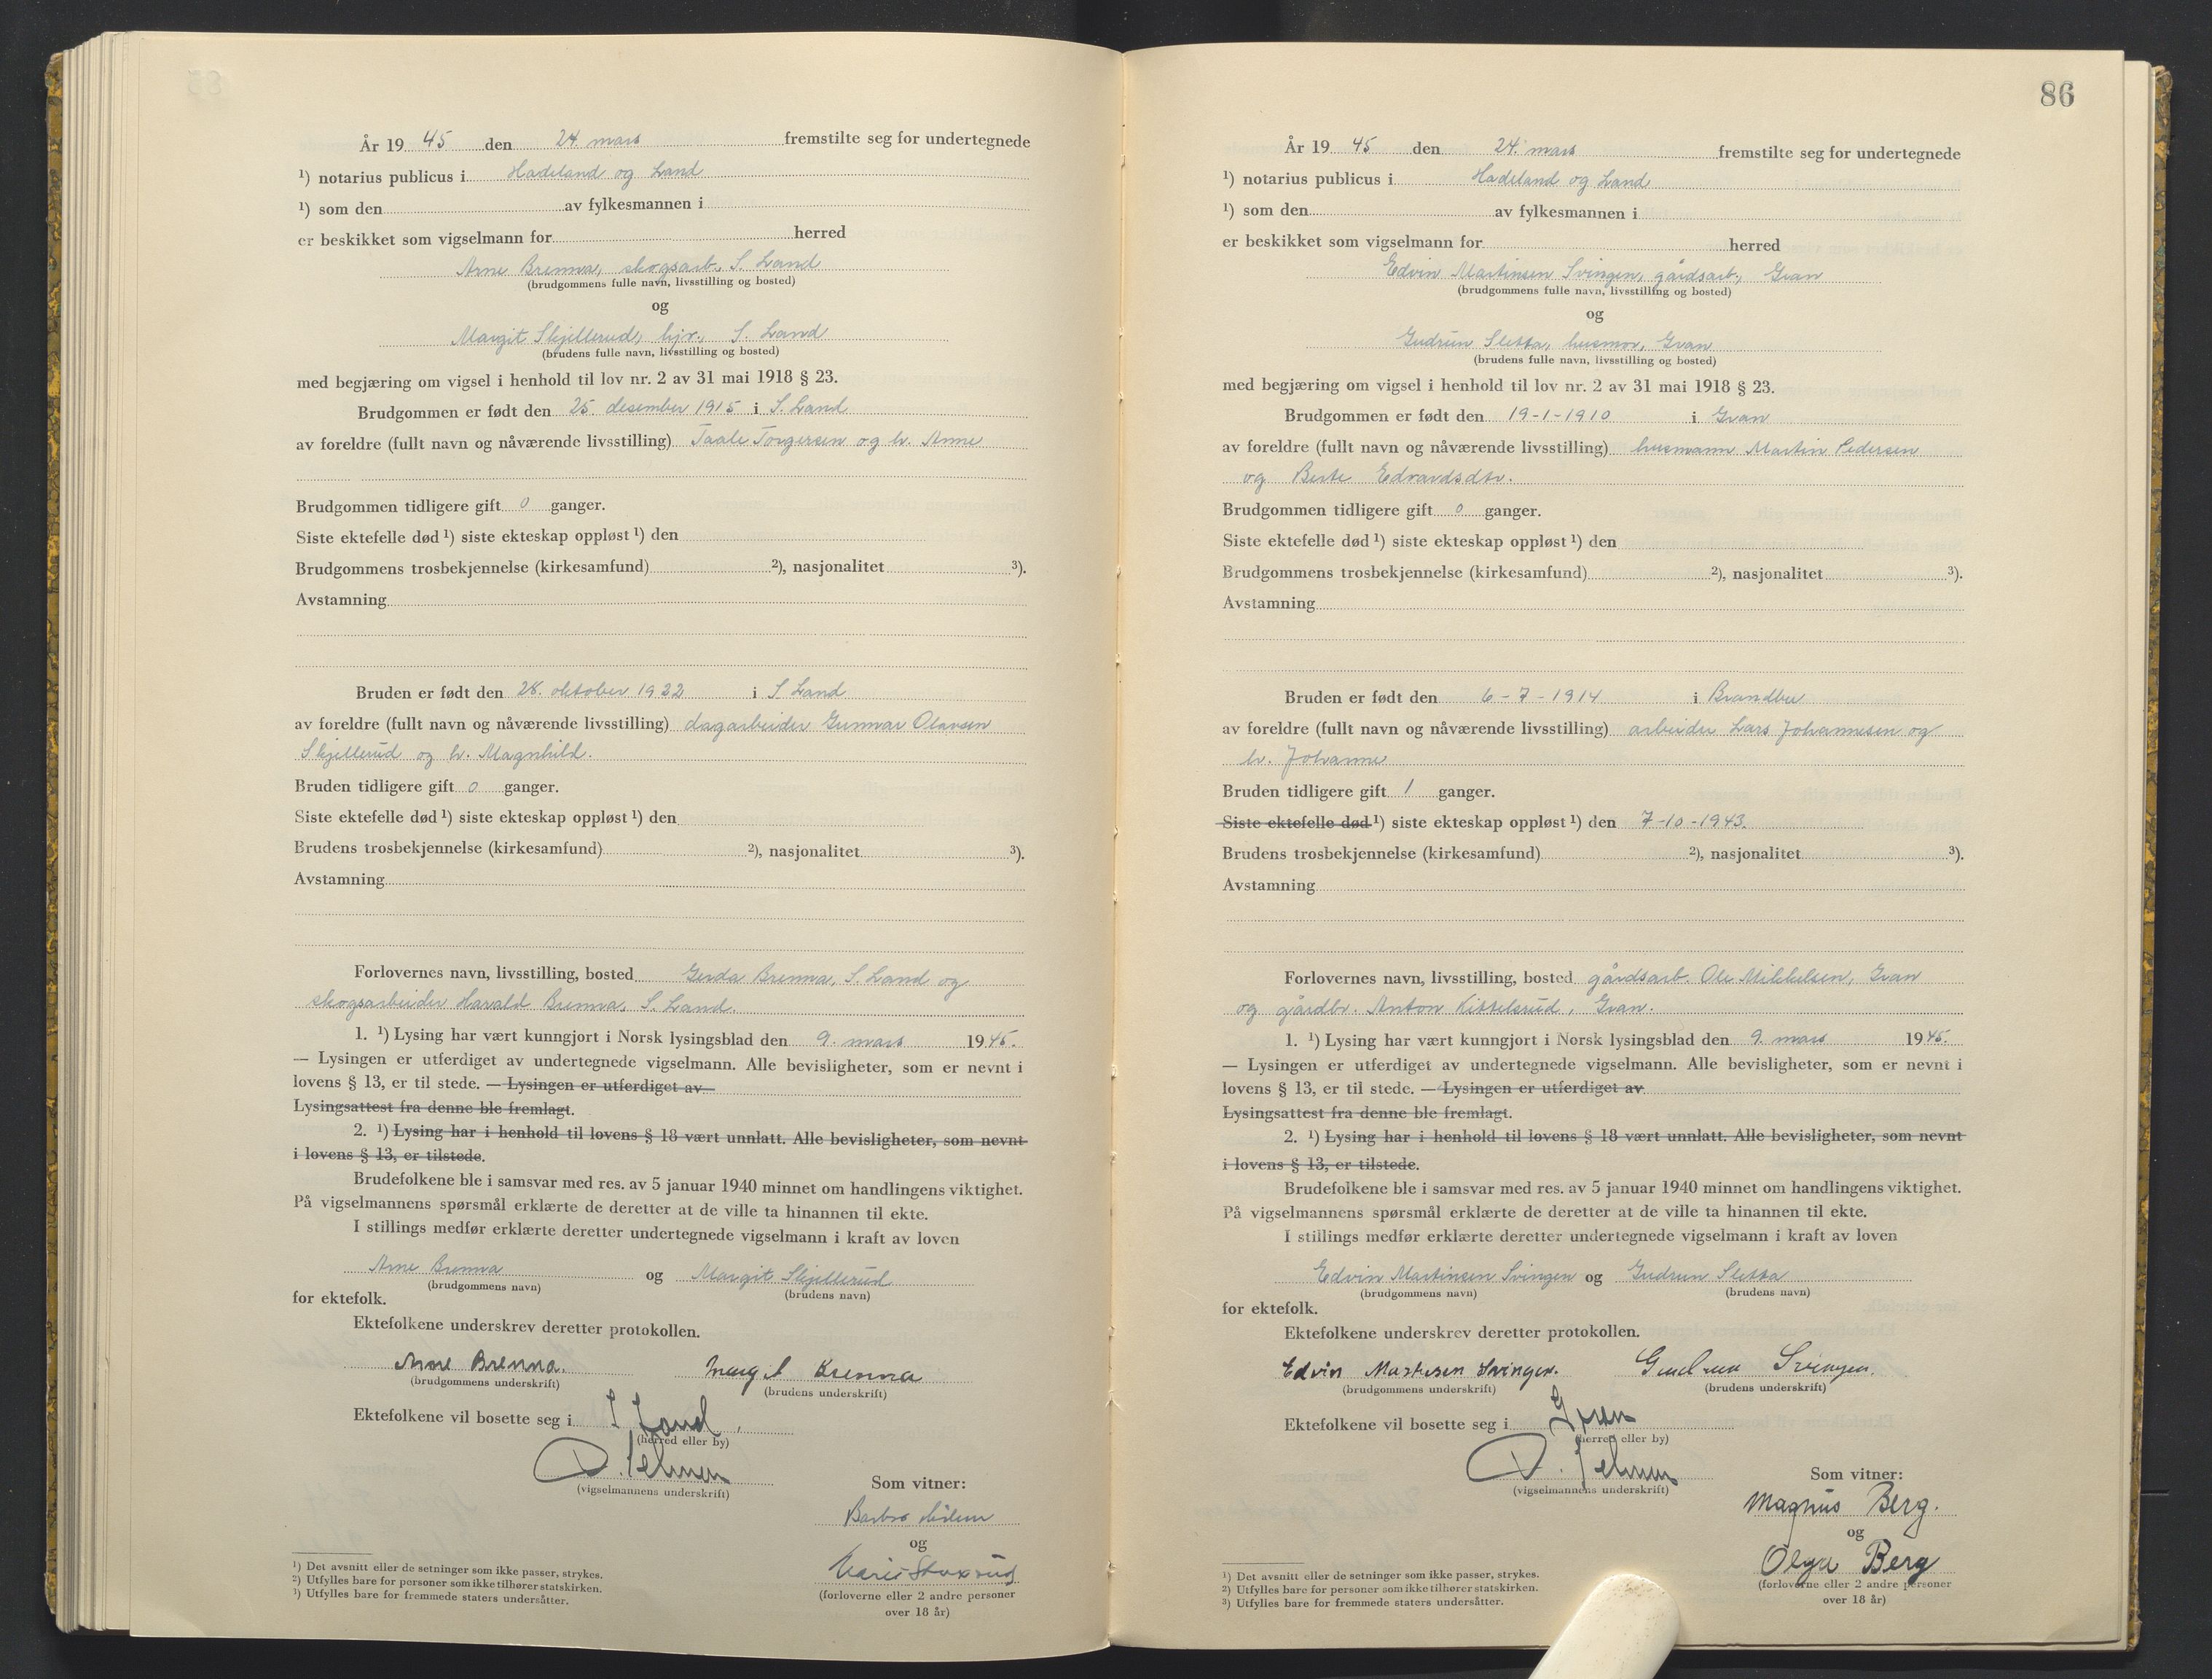 År 19 45 den 24. mars fremstilte seg for undertegnede
¹) notarius publicus i Hadeland og Land
¹) som den av fylkesmannen i
er beskikket som vigselmann for herred
Arne Brenna, skogsarb., S. Land
(brudgommens fulle navn, livsstilling og bosted)
og
Margit Skjellerud, hjv., S. Land
(brudens fulle navn, livsstilling og bosted)
med begjæring om vigsel i henhold til lov nr. 2 av 31 mai 1918 § 23.
Brudgommen er født den 25. desember 1915 i S. Land
av foreldre (fullt navn og nåværende livsstilling) Taale Torgersen og h. Anne
Brudgommen tidligere gift 0 ganger.
Siste ektefelle død ¹) siste ekteskap oppløst ¹) den
Brudgommens trosbekjennelse (kirkesamfund) ²), nasjonalitet ³).
Avstamning
Bruden er født den 28. oktober 1922 i S. Land
av foreldre (fullt navn og nåværende livsstilling) dagarbeider Gunnar Olavsen
Skjellerud og h. Magnhild.
Bruden tidligere gift 0 ganger.
Siste ektefelle død ¹) siste ekteskap oppløst ¹) den
Brudens trosbekjennelse (kirkesamfund) ²), nasjonalitet ³).
Avstamning
Forlovernes navn, livsstilling, bosted Gerda Brenna, S. Land og
skogsarbeider Harald Brenna, S. Land.
1. ¹) Lysing har vært kunngjort i Norsk lysingsblad den 9. mars 1945.
— Lysingen er utferdiget av undertegnede vigselmann. Alle bevisligheter, som er nevnt i
lovens § 13, er til stede. — Lysingen er utferdiget av
Lysingsattest fra denne ble fremlagt.
2. ¹) Lysing har i henhold til lovens § 18 vært unnlatt. Alle bevisligheter, som nevnt
i lovens § 13, er tilstede.
Brudefolkene ble i samsvar med res. av 5 januar 1940 minnet om handlingens viktighet.
På vigselmannens spørsmål erklærte de deretter at de ville ta hinannen til ekte.
I stillings medfør erklærte deretter undertegnede vigselmann i kraft av loven
Arne Brenna og Margit Skjellerud
(brudgommens navn) (brudens navn)
for ektefolk.
Ektefolkene underskrev deretter protokollen.
Arne Brenna. Margit Brenna
(brudgommens underskrift) (brudens underskrift)
Ektefolkene vil bosette seg i S Land,
(herred eller by)
(vigselmannens underskrift)
Som vitner:
Barbro
og
(forloverne eller 2 andre personer
over 18 år)
¹) Det avsnitt eller de setninger som ikke passer, strykes.
²) Utfylles bare for personer som ikke tilhører statskirken.
³) Utfylles bare for fremmede staters undersåtter.
86
År 19 45 den 24. mars fremstilte seg for undertegnede
¹) notarius publicus i Hadeland og Land
¹) som den av fylkesmannen i
er beskikket som vigselmann for herred
Edvin Martinsen Svingen, gårdsarb., Gran
(brudgommens fulle navn, livsstilling og bosted)
og
Gudrun Sletta, husmor, Gran
(brudens fulle navn, livsstilling og bosted)
med begjæring om vigsel i henhold til lov nr. 2 av 31 mai 1918 § 23.
Brudgommen er født den 19-1-1910 i Gran
av foreldre (fullt navn og nåværende livsstilling) husmann Martin Pedersen
og Berte Edvardsdtr.
Brudgommen tidligere gift 0 ganger.
Siste ektefelle død ¹) siste ekteskap oppløst ¹) den
Brudgommens trosbekjennelse (kirkesamfund) ²), nasjonalitet ³).
Avstamning
Bruden er født den 6-7-1914 i Brandbu
av foreldre (fullt navn og nåværende livsstilling) arbeider Lars Johannesen og
h. Johanne
Bruden tidligere gift 1 ganger.
Siste ektefelle død ¹) siste ekteskap oppløst ¹) den 7-10-1943.
Brudens trosbekjennelse (kirkesamfund) ²), nasjonalitet ³).
Avstamning
Forlovernes navn, livsstilling, bosted gårdsarb. Ole Mikkelsen, Gran
og gårdbr. Anton Kittelsrud, Gran.
1. ¹) Lysing har vært kunngjort i Norsk lysingsblad den 9. mars 1945.
— Lysingen er utferdiget av undertegnede vigselmann. Alle bevisligheter, som er nevnt i
lovens § 13, er til stede. — Lysingen er utferdiget av
Lysingsattest fra denne ble fremlagt.
2. ¹) Lysing har i henhold til lovens § 18 vært unnlatt. Alle bevisligheter, som nevnt
i lovens § 13, er tilstede.
Brudefolkene ble i samsvar med res. av 5 januar 1940 minnet om handlingens viktighet.
På vigselmannens spørsmål erklærte de deretter at de ville ta hinannen til ekte.
I stillings medfør erklærte deretter undertegnede vigselmann i kraft av loven
Edvin Martinsen Svingen og Gudrun Sletta
(brudgommens navn) (brudens navn)
for ektefolk.
Ektefolkene underskrev deretter protokollen.
Edvin Martinsen Svingen. Gudrun Svingen.
(brudgommens underskrift) (brudens underskrift)
Ektefolkene vil bosette seg i Gran
(herred eller by)
(vigselmannens underskrift)
Som vitner:
Magnus Berg.
og
Olga Berg
(forloverne eller 2 andre personer
over 18 år)
¹) Det avsnitt eller de setninger som ikke passer, strykes.
²) Utfylles bare for personer som ikke tilhører statskirken.
³) Utfylles bare for fremmede staters undersåtter.